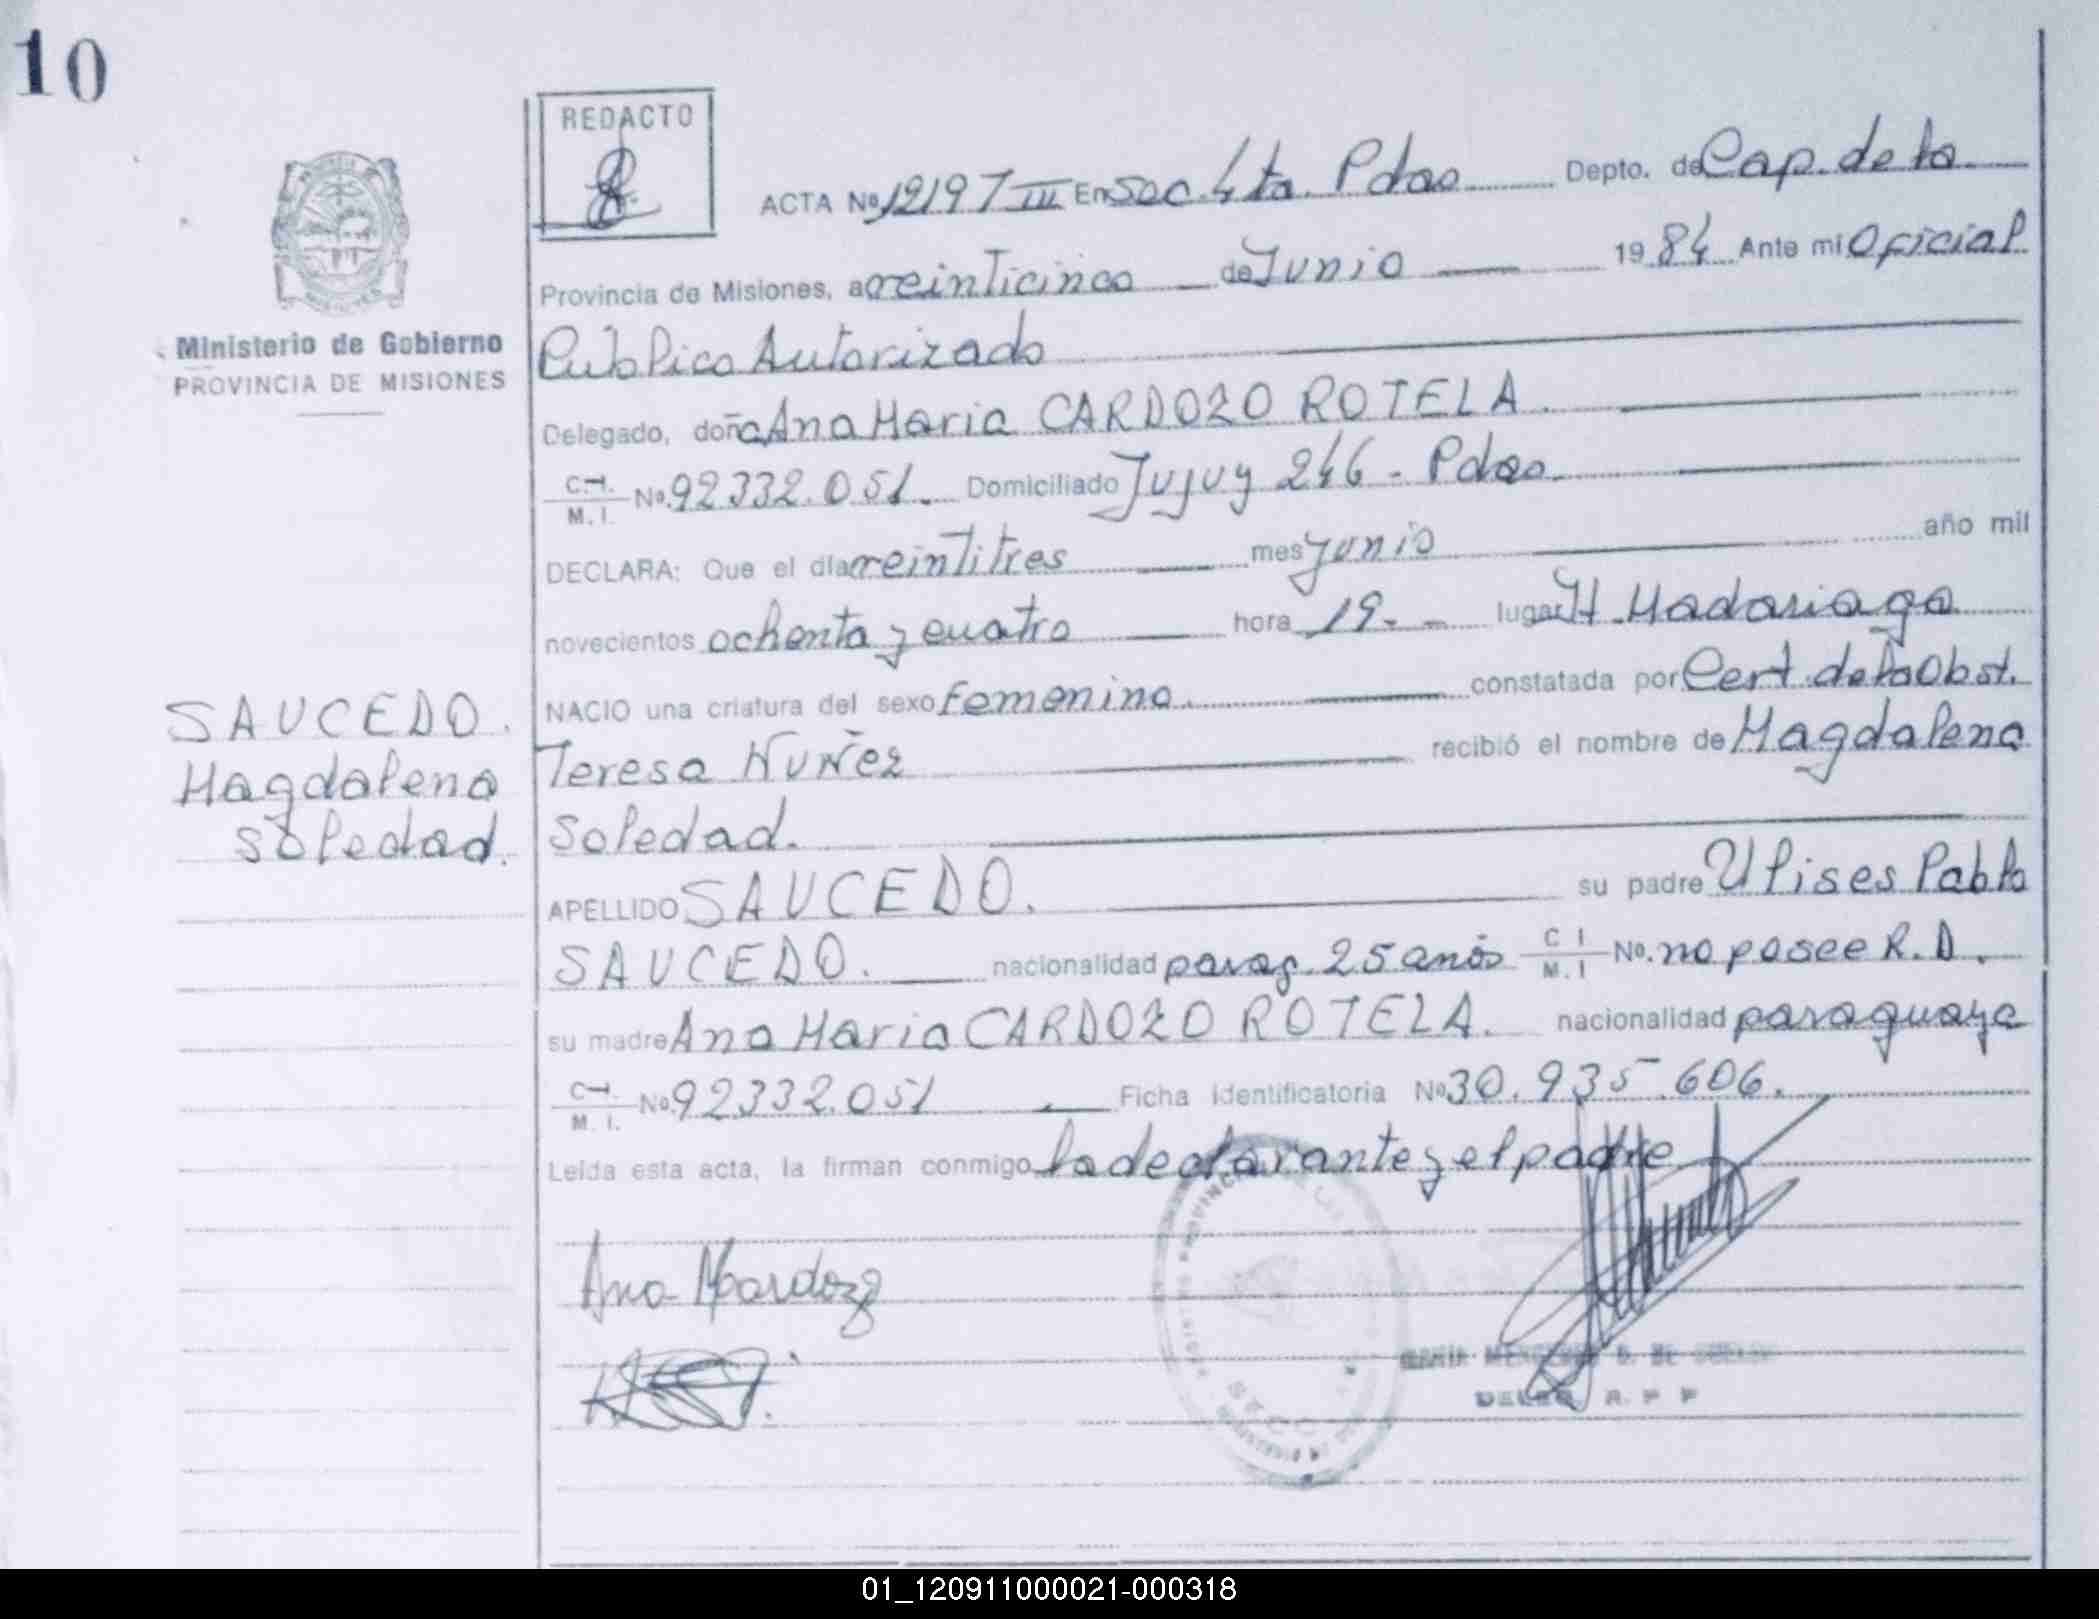 10
REDACTO
ACTA Nº 12197 III En Sec. 4ta. Pdas Depto. de Cap. de la
Provincia de Misiones, a veinticinco de Junio 1984 Ante mi Oficial
Ministerio de Gobierno
PROVINCIA DE MISIONES
Público Autorizado
Delegado, doña Ana Maria CARDOZO ROTELA.
C.I. M.I. Nº. 92332.051. Domiciliado Jujuy 246 - Pdas.
DECLARA: Que el día veintitres mes junio año mil
novecientos ochenta y cuatro hora 19.- lugar H. Madariaga
NACIO una criatura del sexo femenino. constatada por Cert. de la Obst.
Teresa Nuñez recibió el nombre de Magdalena
Soledad.
SAUCEDO.
Magdalena
Soledad.
APELLIDO SAUCEDO. su padre Ulises Pablo
SAUCEDO. nacionalidad parag. 25 años C I M. I Nº. no posee R.D.
su madre Ana Maria CARDOZO ROTELA. nacionalidad paraguaya
C.I. M. I. Nº. 92332.051 Ficha identificatoria Nº 30.935.606.
Leída esta acta, la firman conmigo la declarante y el padre
Ana MCardozo
PROVINCIAL
MARIA D. DE
R. P P
01_120911000021-000318